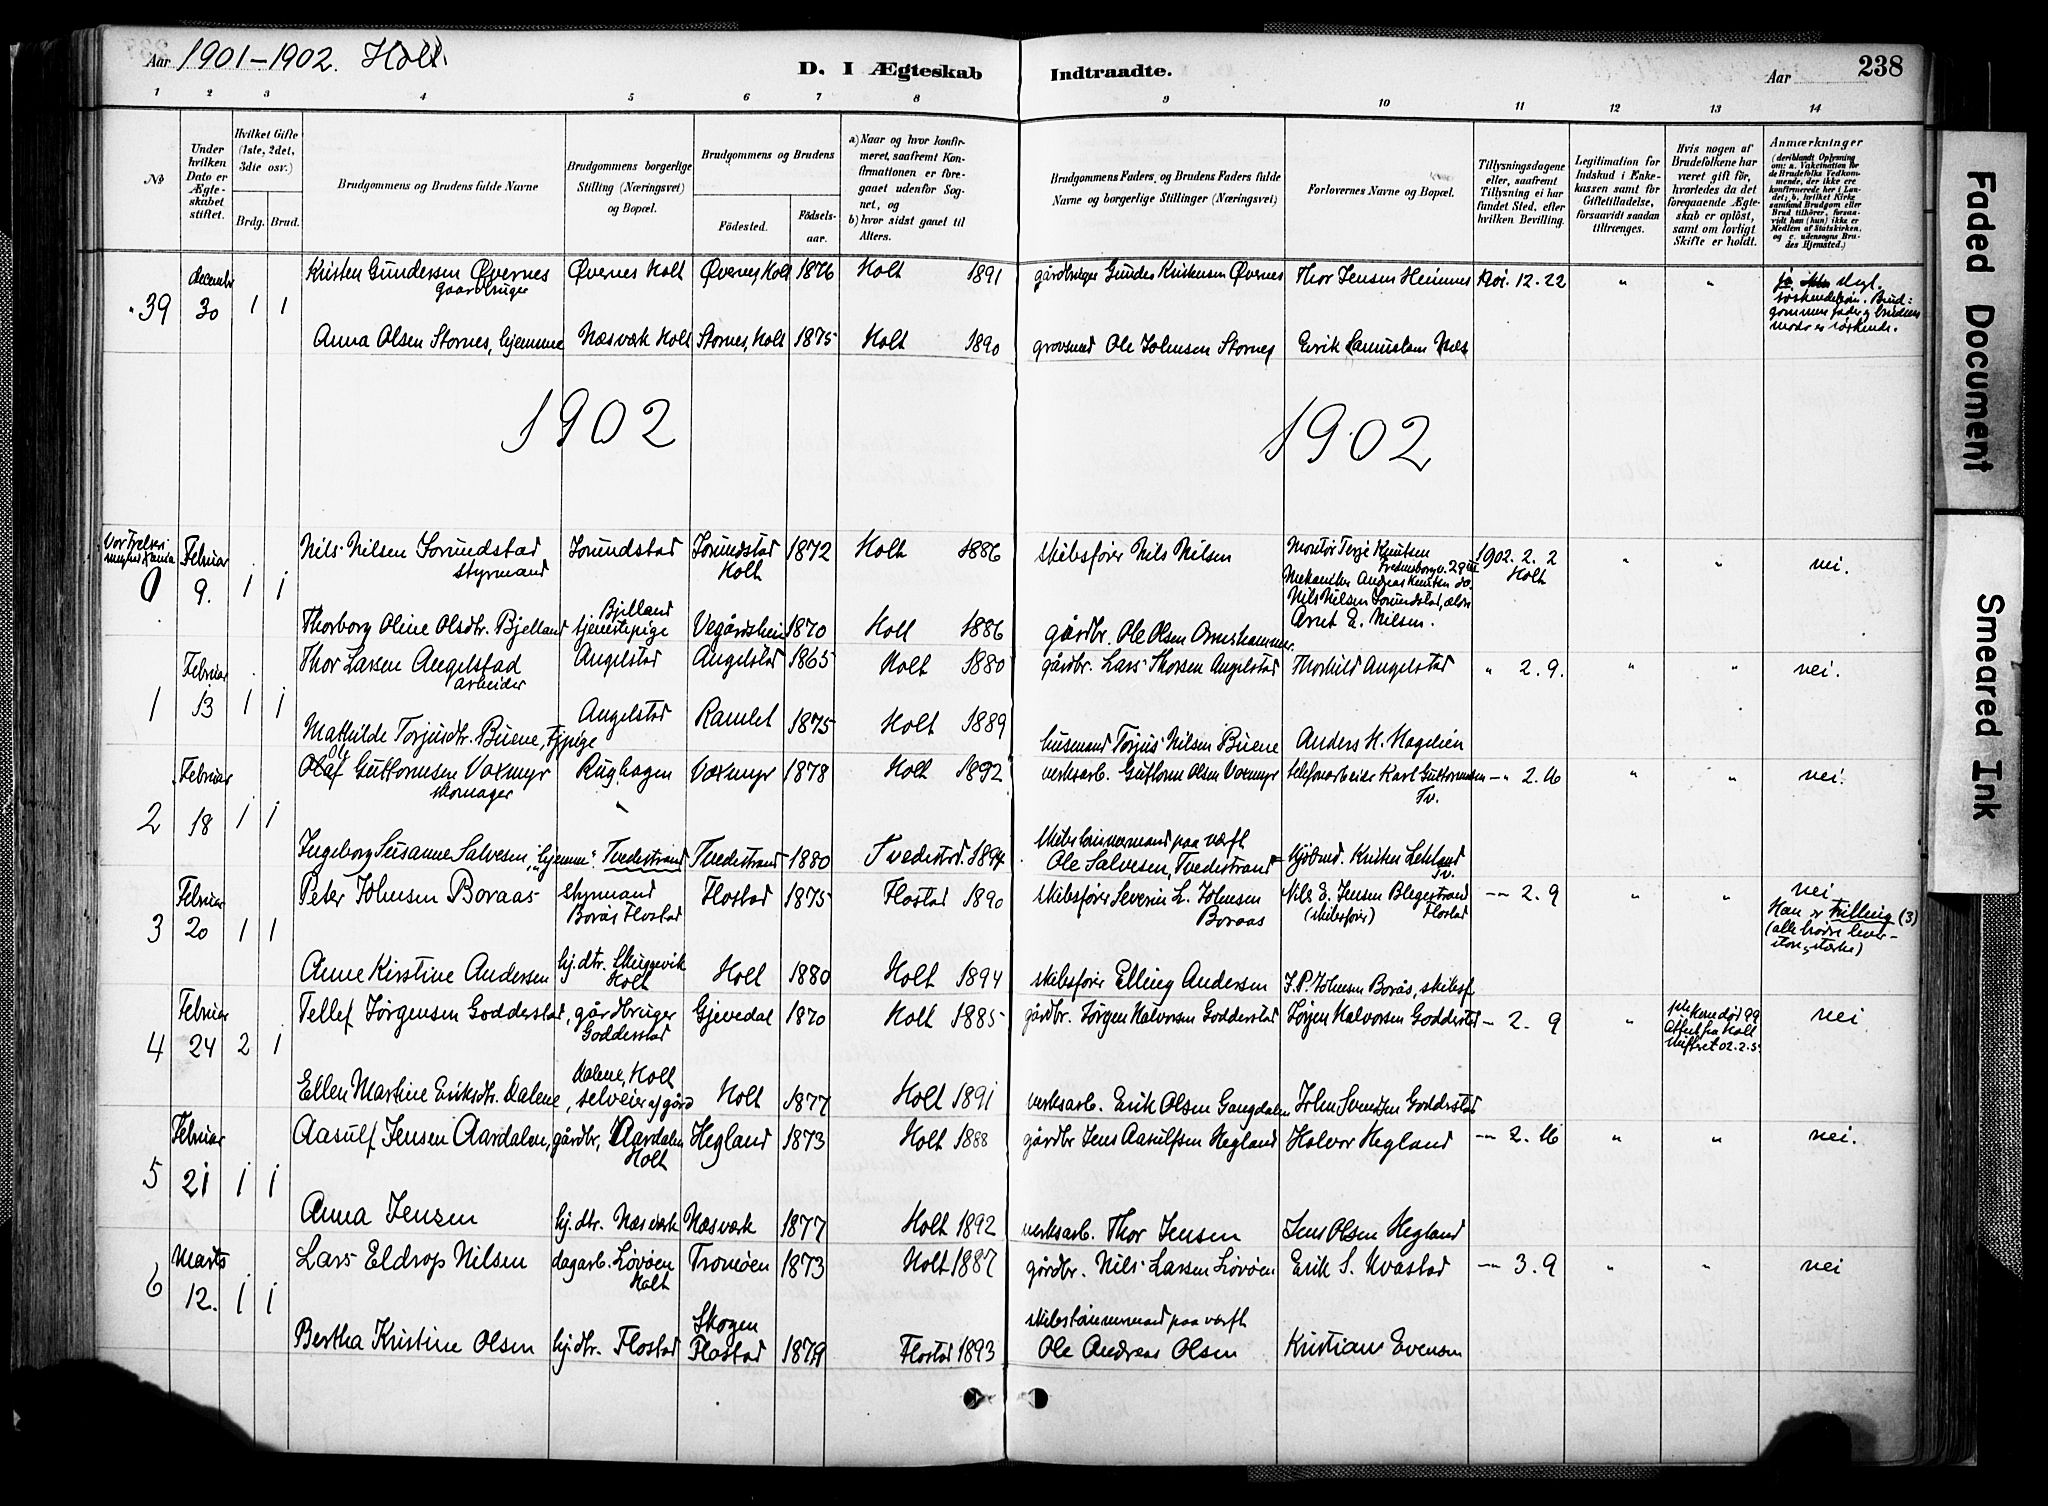 Aar 1901-1902. Holt.
D. I Ægteskab Indtraadte.
Aar
238
1 2 3 4 5 6 7 8 9 10 11 12 13 14
No
Under hvilken Dato er Ægteskabet stiftet.
Hvilket Gifte (1ste, 2det, 3die osv.)
Brdg. Brud.
Brudgommens og Brudens fulde Navne
Brudgommens borgerlige Stilling (Næringsvei) og Bopæl.
Brudgommens og Brudens
Fødested.
Fødselsaar.
a) Naar og hvor konfirmeret, saafremt Konfirmationen er foregaaet udenfor Sognet, og
b) hvor sidst gaaet til Alters.
Brudgommens Faders, og Brudens Faders fulde Navne og borgerlige Stillinger (Næringsvei)
Forlovernes Navne og Bopæl.
Tillysningsdagene eller, saafremt Tillysning ei har fundet Sted, efter hvilken Bevilling.
Legitimation for Indskud i Enkekassen samt for Giftetilladelse, forsaavidt saadan tiltrænges.
Hvis nogen af Brudefolkene har været gift før, hvorledes da det foregaaende Ægteskab er opløst, samt om lovligt Skifte er holdt.
Anmærkninger
(deriblandt Oplysning om: a. Vakcination for de Brudefolks Vedkommende, der ikke ere konfirmerede her i Landet; b. hvilket Kirkesamfund Brudgom eller Brud tilhører, forsaavidt han (hun) ikke er Medlem af Statskirken, og c. udensogns Brudes Hjemsted.)
39 december 30 1 1 Kristen Gundersen Øvernes gaardbruger Øvernes Holt Øvernes, Holt 1876 Holt 1891 gårdbruger Gunder Kristensen Øvernes Thor Jensen Heimnes Nov. 12. 22 " "
søskendebørn. Brudgommens fader og brudens moder er søskende.
Anna Olsen Stornes, hjemme Næsværk Holt Stornes, Holt 1875 Holt 1890 grovsmed Ole Johnsen Stornes Erik
1902 1902
Februar 9. 1 1 Nils Nilsen Sorundstad styrmand Sorundstad Sorundstad Holt 1872 Holt 1886 skibsfører Nils Nilsen Montør Terje Knutsen 1902. 2. 2 Holt " " nei.
Andreas Knutsen do.
Nils Nilsen Sorundstad,
Thorborg Oline Olsdtr. Bjelland Bjelland tjenestepige Vegårdsheien 1870 Holt 1886 gårdbr. Ole Olsen Arnt E. Nilsen.
1 Februar 13 1 1 Thor Larsen Angelstad arbeider Angelstad Angelstad 1865 Holt 1880 gårdbr. Lars Thorsen Angelstad Thorhild Angelstad " 2. 9. " " nei.
Mathilde Torjusdtr. Buene, Tjpige Angelstad Ramlet 1875 Holt 1889 husmand Torjus Nilsen Buene Anders H. Hagelien
2 Februar 18 1 1 Olaf Guttormsen Voxmyr skomager Rughagen Voxmyr 1878 Holt 1892 verksarb. Guttorm Olsen Voxmyr telefonarbeider Karl Guttormsen Tv. -" 2. 16 " " nei.
Ingeborg Susanne Salvesen, "hjemme" Tvedestrand Tvedestrand 1880 Tvedestrd. 1894 skibstømmermand paa værft Ole Salvesen, Tvedestrand Kjøbmd. Kristen Tv.
3 Februar 20 1 1 Peter Johnsen Boraas styrmand Borås Flostad Flostad 1875 Flostad 1890 skibsfører Severin L. Johnsen Boraas Nils E. Jensen (skibsfører) Flostad -" 2. 9 " " nei
Han er Trilling (3)
(alle brødre lever - store, stærke)
Anne Kirstine Andersen hj. dtr. Skuggevik Holt Holt 1880 Holt 1894 skibsfører Elling Andersen J. P. Johnsen Borås, skibsf.
4 Februar 24 2 1 Tellef Jørgensen Godderstad, gårdbruger Godderstad Gjevedal 1870 Holt 1885 gårdbr. Jørgen Halvorsen Godderstad Jørgen Halvorsen Godderstad - 2. 9 " 1ste kone død 99 Attest fra Holt skifteret 02.2.5. nei
Ellen Martine Eriksdtr. Dalene, Dalene, Holt selveier af gård Holt 1877 Holt 1891 verksarb. Erik Olsen Gangdalen John Svendsen Godderstad
5 Februar 21 1 1 Aasulf Jensen Aardalen, gårdbr, Aardalen Holt Hegland 1873 Holt 1888 gårdbr Jens Aasulfsen Hegland Halvor Hegland -" 2. 16 " " nei.
Anna Jensen hj. dtr. Næsværk Næsværk 1877 Holt 1892 verksarb. Thor Jensen Jens Olsen Hegland
6 Marts 12. 1 1 Lars Eldrop Nilsen dagarb. Løvøen Holt Tromøen 1873 Holt 1887 gårdbr. Nils Larsen Løvøen Erik S. Kvastad -" 3. 9 " " nei
Bertha Kristine Olsen hj. dtr. Flostad Skogen Flostad 1879 Flostad 1893 skibstømmermand paa værft Ole Andreas Olsen Kristians Evensen
Faded Document
Smeared Ink